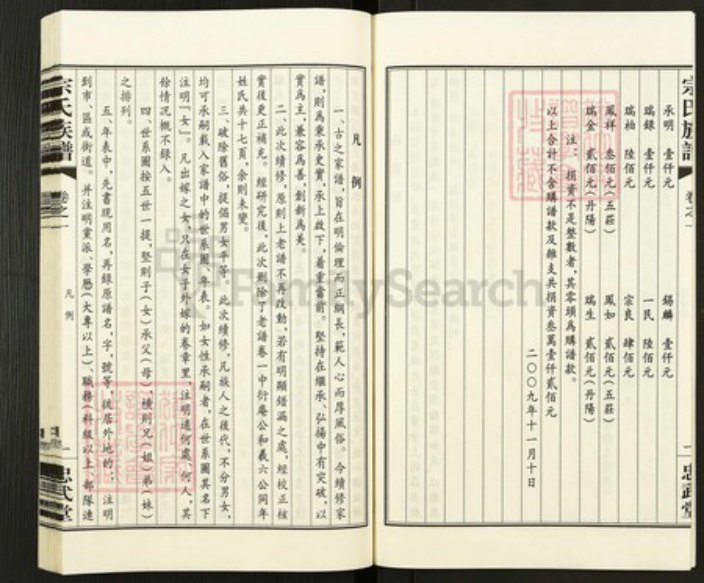 宗氏族譜
卷之一
忠武堂
承明 壹仟元
錫麟 壹仟元
瑞錄 壹仟元
一民 陸佰元
瑞柏 陸佰元
宗良 肆佰元
鳳祥 叁佰元(五莊)
鳳如 貳佰元(五莊)
瑞金 貳佰元(丹陽)
瑞生 貳佰元(丹陽)
注:捐資不是整數者,其零頭爲購譜款。
以上合計不含購譜款及雜支共捐資叁萬壹仟貳佰元
二〇〇九年十一月十日
凡例
一、古之家譜,旨在明倫理而正綱長,範人心而厚風俗。今續修家
譜,則爲秉承史實,承上啟下,着重當前。堅持在繼承、弘揚中有突破,以
實爲主,兼容爲善,創新爲美。
二、此次續修,原則上老譜不再改動,若有明顯錯漏之處,經校正核
實後更正補充。經研究後,此次刪除了老譜卷一中衍慶公和義六公同年
姓氏共十七頁,余則未變。
三、破除舊俗,提倡男女平等。此次續修,凡族人之後代,不分男女,
均可承嗣載入家譜中的世系圖、年表。如女性承嗣者,在世系圖其名下
注明「女」。凡出嫁之女,只在女子外嫁的卷章里,注明適何處何人,其
餘情況概不錄入。
四、世系圖按五世一提,豎則子(女)承父(母),橫則兄(姐)弟(妹)
之排列。
五、年表中,先書現用名,再錄原譜名,字,號等,徙居外地的,注明
到市、區或街道。并注明黨派、學歷(大專以上)、職務(科級以上,部隊連
宗氏族譜
卷之一
凡例
一
忠武堂